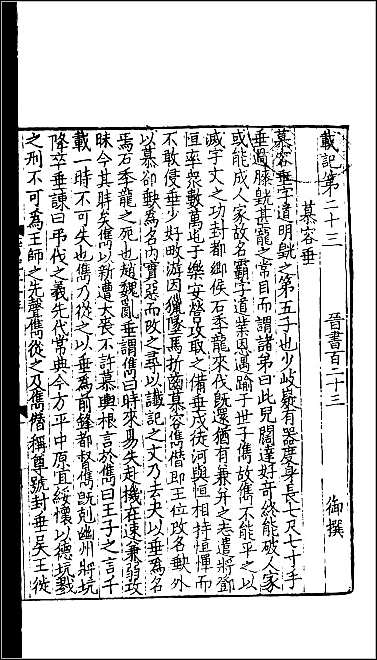 載記第二十三　晉書百二十三　御撰
慕容垂
慕容垂字道明皝之第五子也少岐嶷有器度身長七尺七寸手
垂過膝皝甚寵之常目而謂諸弟曰此兒闊達好奇終能破人家
或能成人家故名霸字道業恩遇踰于世子儁故儁不能平之以
滅宇文之功封都鄉侯石季龍來伐旣還猶有兼并之志遣將鄧
恒率衆數萬屯于樂安營攻取之備垂戍徒河與恒相持恒憚而
不敢侵垂少好畋游因獵墜馬折齒慕容儁僭即王位改名𡙇外
以慕郤𡙇為名内實惡而改之尋以讖記之文乃去夬以垂為名
焉石季龍之死也趙魏亂垂謂儁曰時來易失赴機在速兼弱攻
昧今其時矣儁以新遭大喪不許慕輿根言於儁曰王子之言千
載一時不可失也儁乃從之以垂為前鋒都督儁旣剋幽州將坑
降卒垂諫曰弔伐之義先代常典今方平中原宜綏懷以德坑戮
之刑不可為王師之先聲儁從之及儁僭稱尊號封垂吳王徙